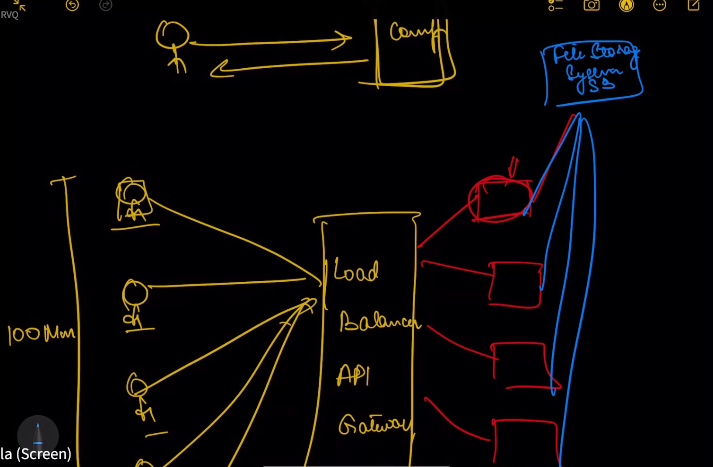 RVQ
Comp
File Storage
System
S3
100Mm
Load
Balancer
API
Gateway
la (Screen)